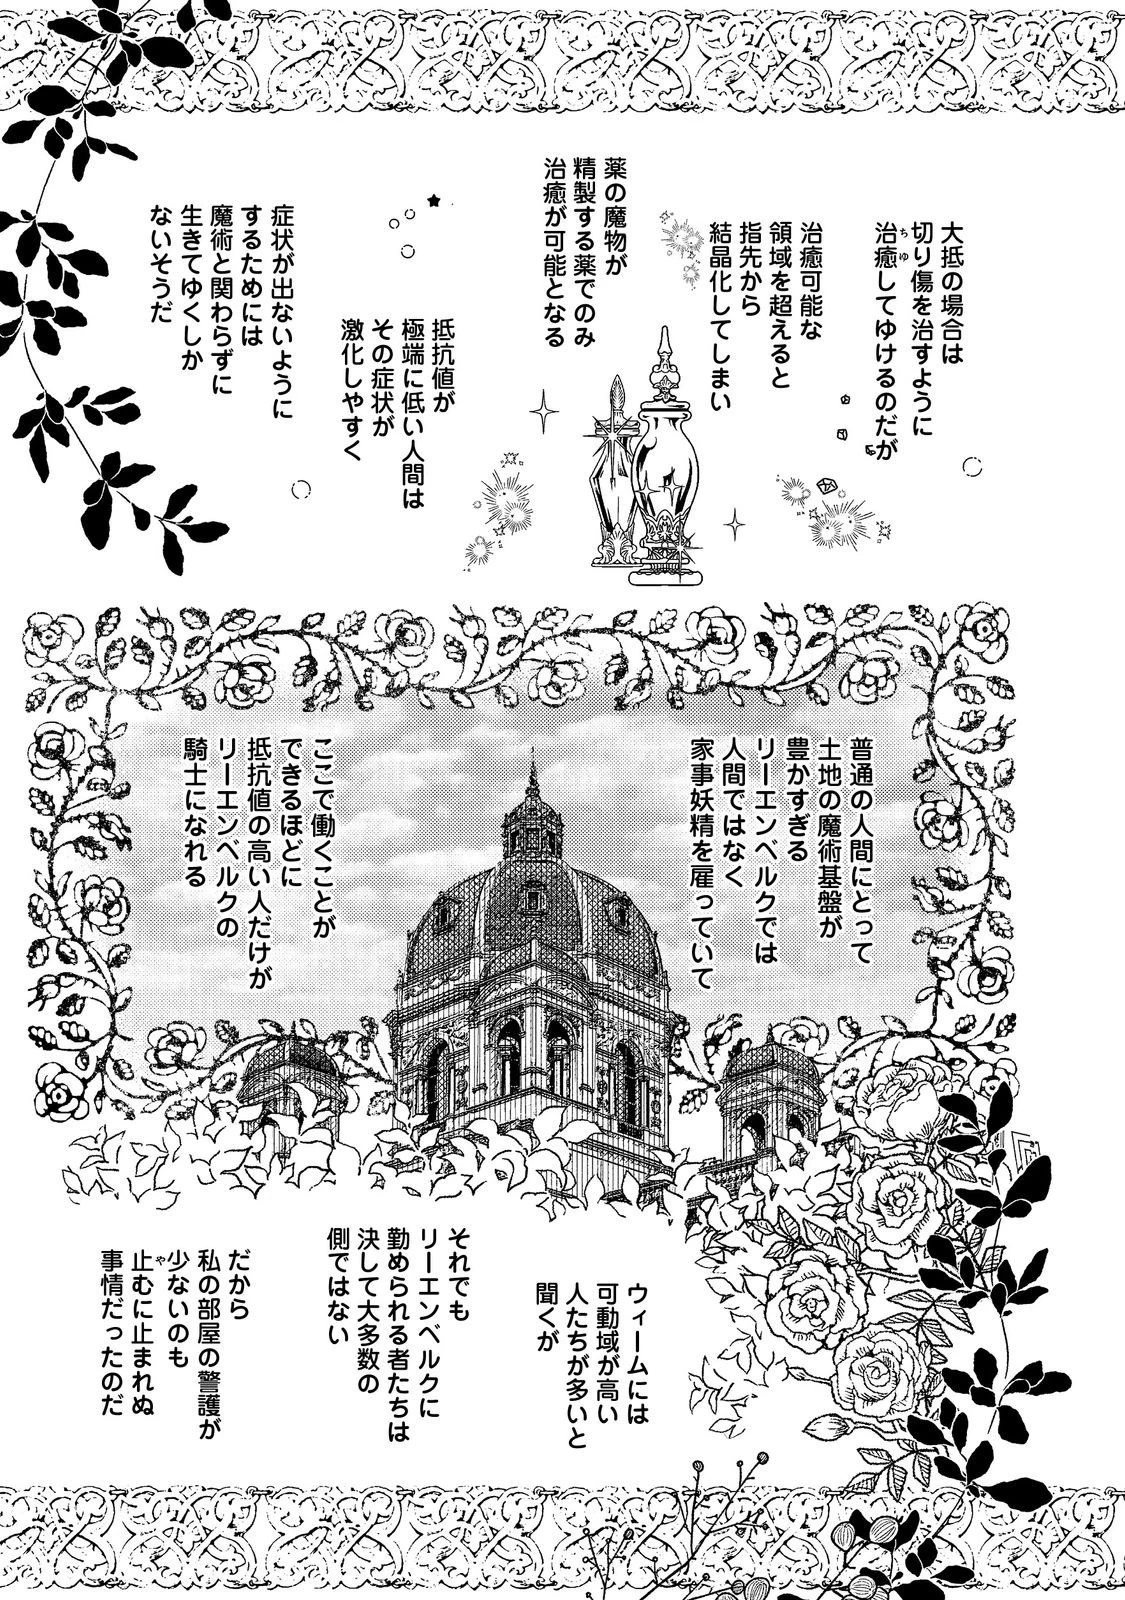 大抵の場合は
切り傷を治すように
治癒してゆけるのだが
ちゆ
治癒可能な
領域を超えると
指先から
結晶化してしまい
薬の魔物が
精製する薬でのみ
治癒が可能となる
抵抗値が
極端に低い人間は
その症状が
激化しやすく
症状が出ないように
するためには
魔術と関わらずに
生きてゆくしか
ないそうだ
普通の人間にとって
土地の魔術基盤が
豊かすぎる
リーエンベルクでは
人間ではなく
家事妖精を雇っていて
ここで働くことが
できるほどに
抵抗値の高い人だけが
リーエンベルクの
騎士になれる
ウィームには
可動域が高い
人たちが多いと
聞くが
それでも
リーエンベルクに
勤められる者たちは
決して大多数の
側ではない
だから
私の部屋の警護が
少ないのも
止むに止まれぬ
や
事情だったのだ